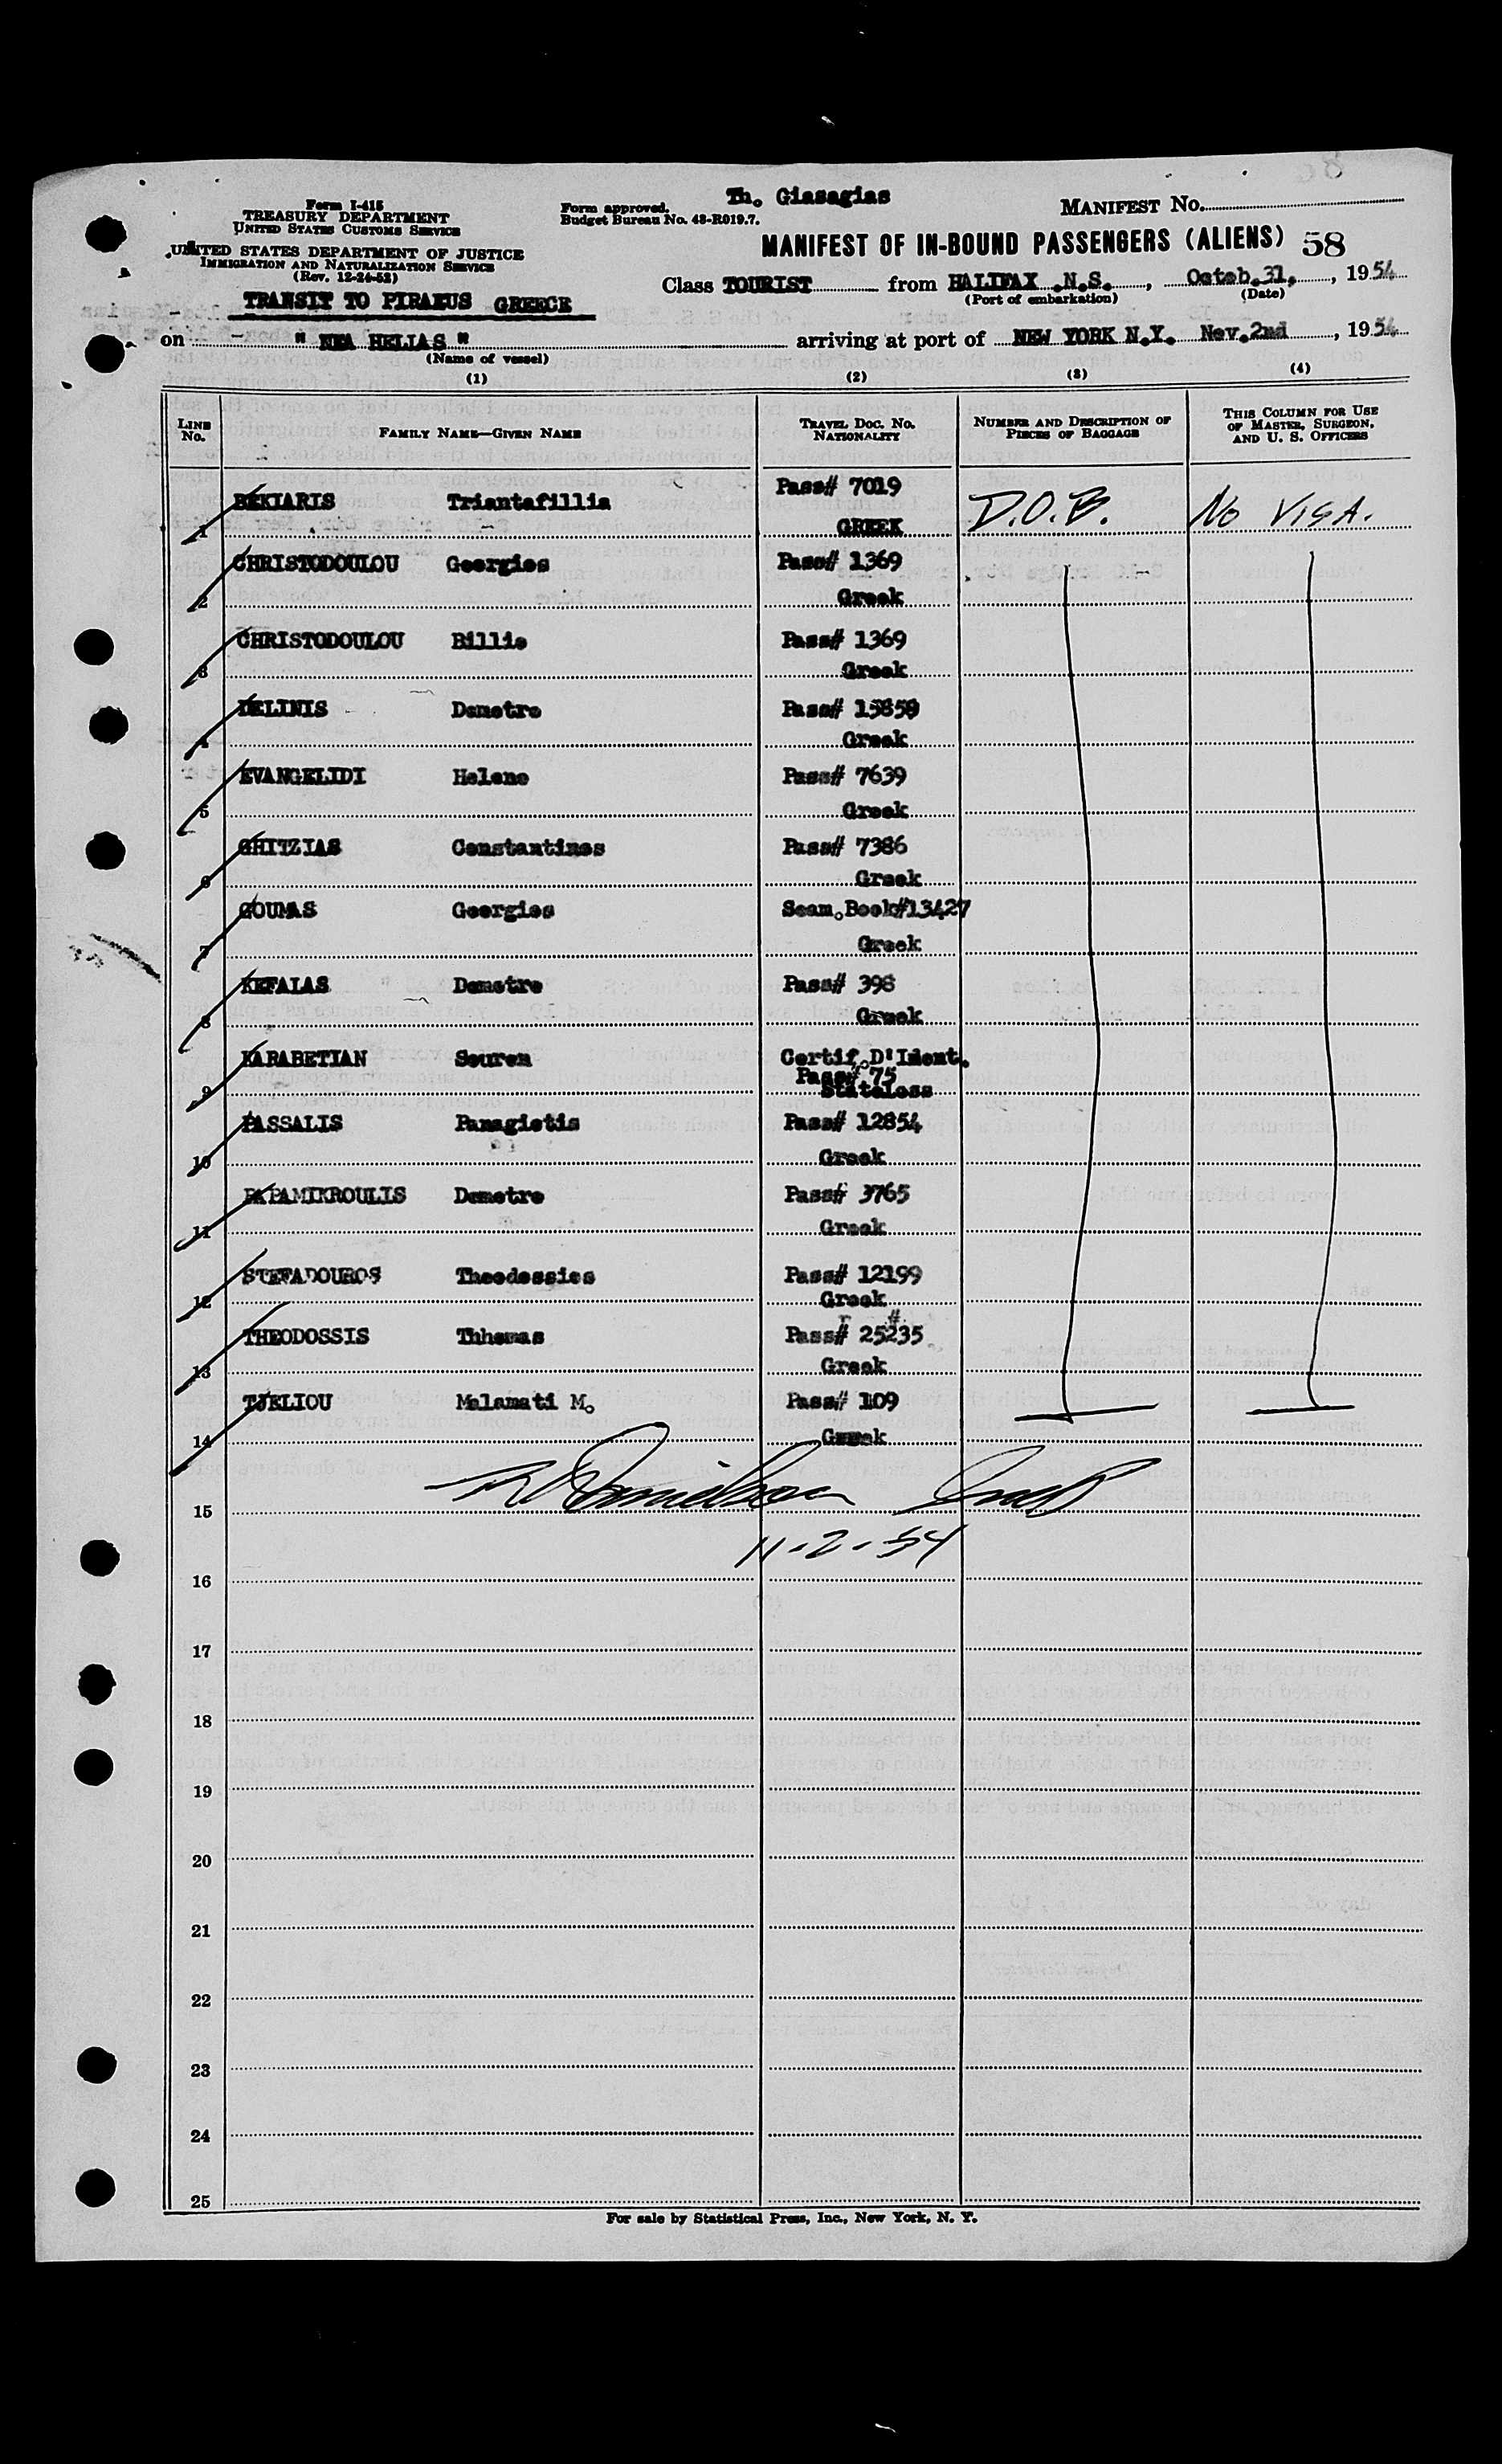 Th. Giasagias
Form I-415
TREASURY DEPARTMENT
UNITED STATES CUSTOMS SERVICE
UNITED STATES DEPARTMENT OF JUSTICE
IMMIGRATION AND NATURALIZATION SERVICE
(Rev. 12-24-52)
Form approved.
Budget Bureau No. 43-R019.7.
MANIFEST NO.
MANIFEST OF IN-BOUND PASSENGERS (ALIENS) 58
Class TOURIST from HALIFAX .N.S. , Octob.31, , 1954
(Port of embarkation) (Date)
TRANSIT TO PIRAEUS GREECE
on - " NEA HELLAS " arriving at port of NEW YORK N.Y. Nov.2nd , 1954
(Name of vessel)
(1) (2) (3) (4)
LINE NO. FAMILY NAME—GIVEN NAME TRAVEL DOC. NO. NATIONALITY NUMBER AND DESCRIPTION OF PIECES OF BAGGAGE THIS COLUMN FOR USE OF MASTER, SURGEON, AND U. S. OFFICERS
1 BEKIARIS Triantafillia Pass# 7019 D.O.B. No VISA.
GREEK
2 CHRISTODOULOU Georgios Pass# 1369
Greek
3 CHRISTODOULOU Billio Pass# 1369
Greek
4 DELINIS Demetre Pass# 15859
Greek
5 EVANGELIDI Helene Pass# 7639
Greek
6 GHITZIAS Constantinos Pass# 7386
Greek
7 GOUMAS Georgios Seam.Book#13427
Greek
8 KEFALAS Demetre Pass# 398
Greek
9 KARABETIAN Souren Certif.D'Ident.
Pass# 75
Stateless
10 PASSALIS Panagiotis Pass# 12854
Greek
11 PAPAMIKROULIS Demetre Pass# 3765
Greek
12 STEFADOUROS Theodossios Pass# 12199
Greek
13 THEODOSSIS Thhomas Pass# 25235
Greek
14 TJELIOU Malamati M. Pass# 109
Greek
15
11-2-54
16
17
18
19
20
21
22
23
24
25
For sale by Statistical Press, Inc., New York, N. Y.